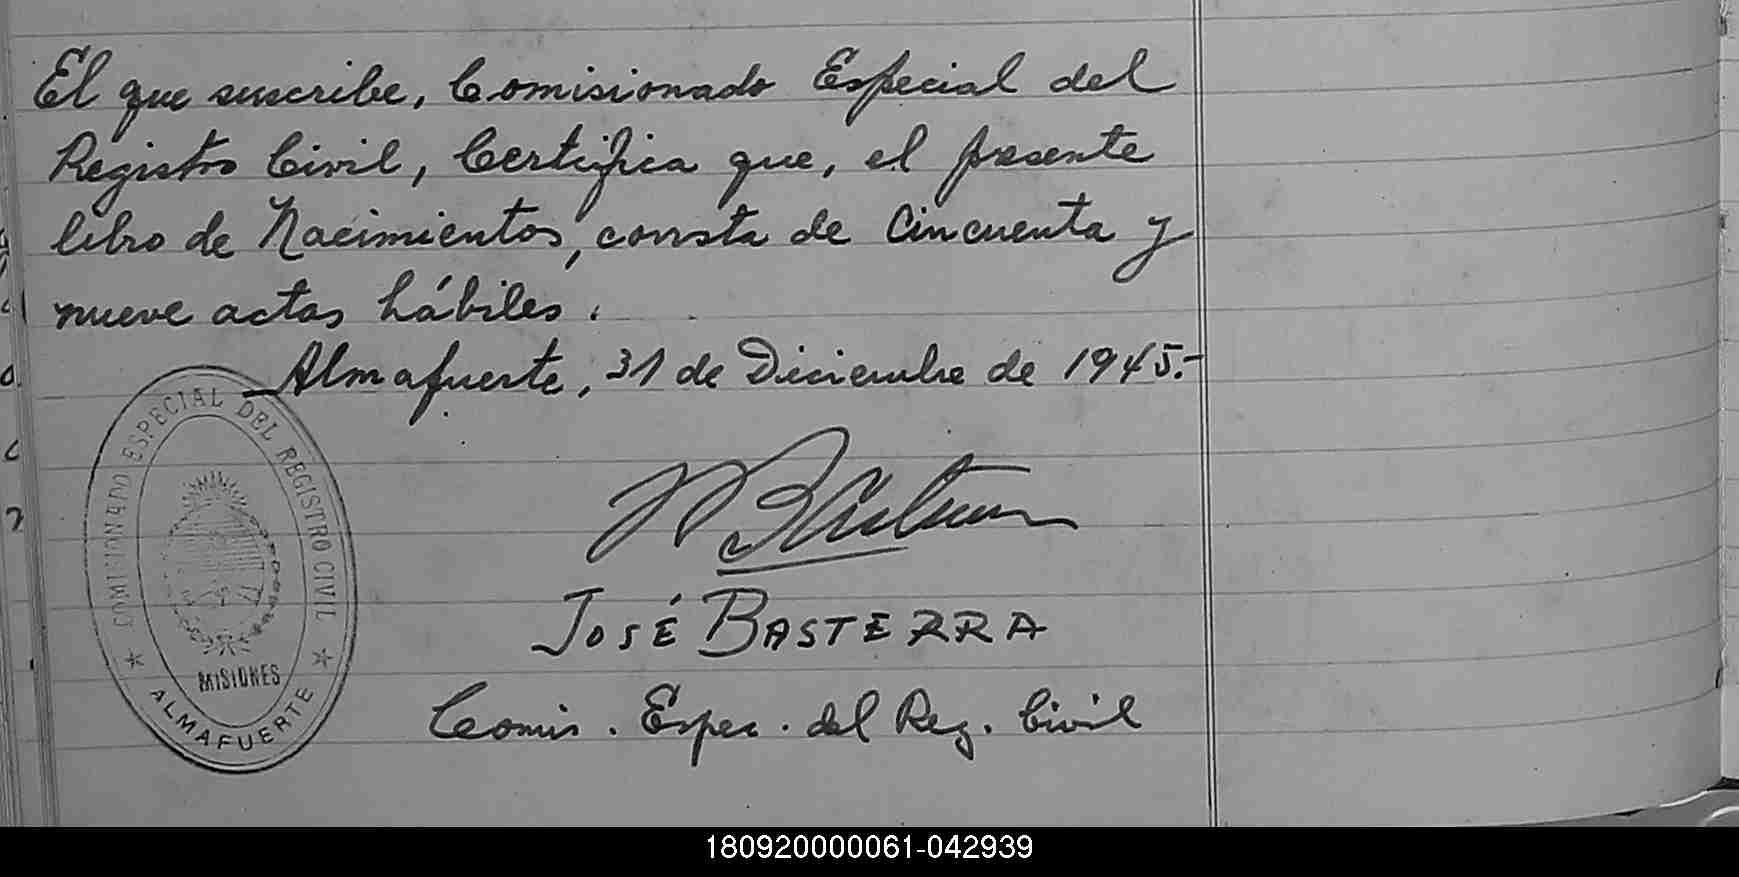 El que suscribe, Comisionado Especial del
Registro Civil, Certifica que, el presente
libro de Nacimientos, consta de Cincuenta y
nueve actas hábiles.
Almafuerte, 31 de Diciembre de 1945.-
COMISIONADO ESPECIAL DEL REGISTRO CIVIL
MISIONES
ALMAFUERTE
JOSÉ BASTERRA
Comis. Espec. del Reg. Civil
180920000061-042939